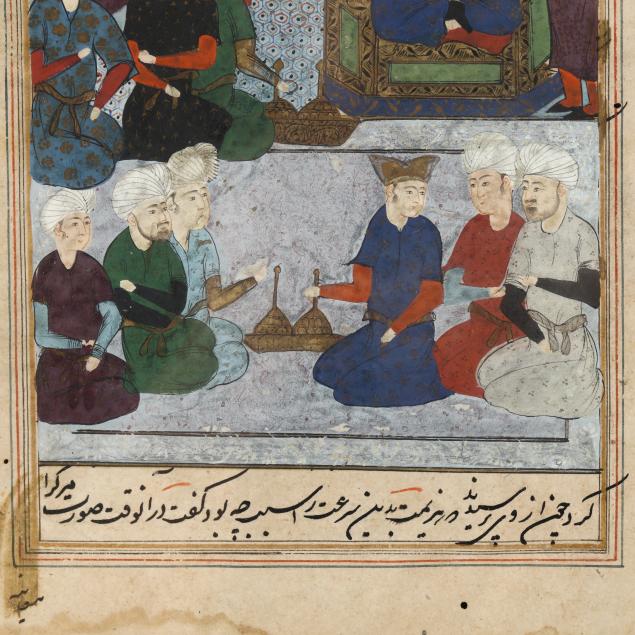 کرد چون از وی پرسیدند در هزیمت بدین سرعت را سبب چه بود گفت در آنوقت صورت